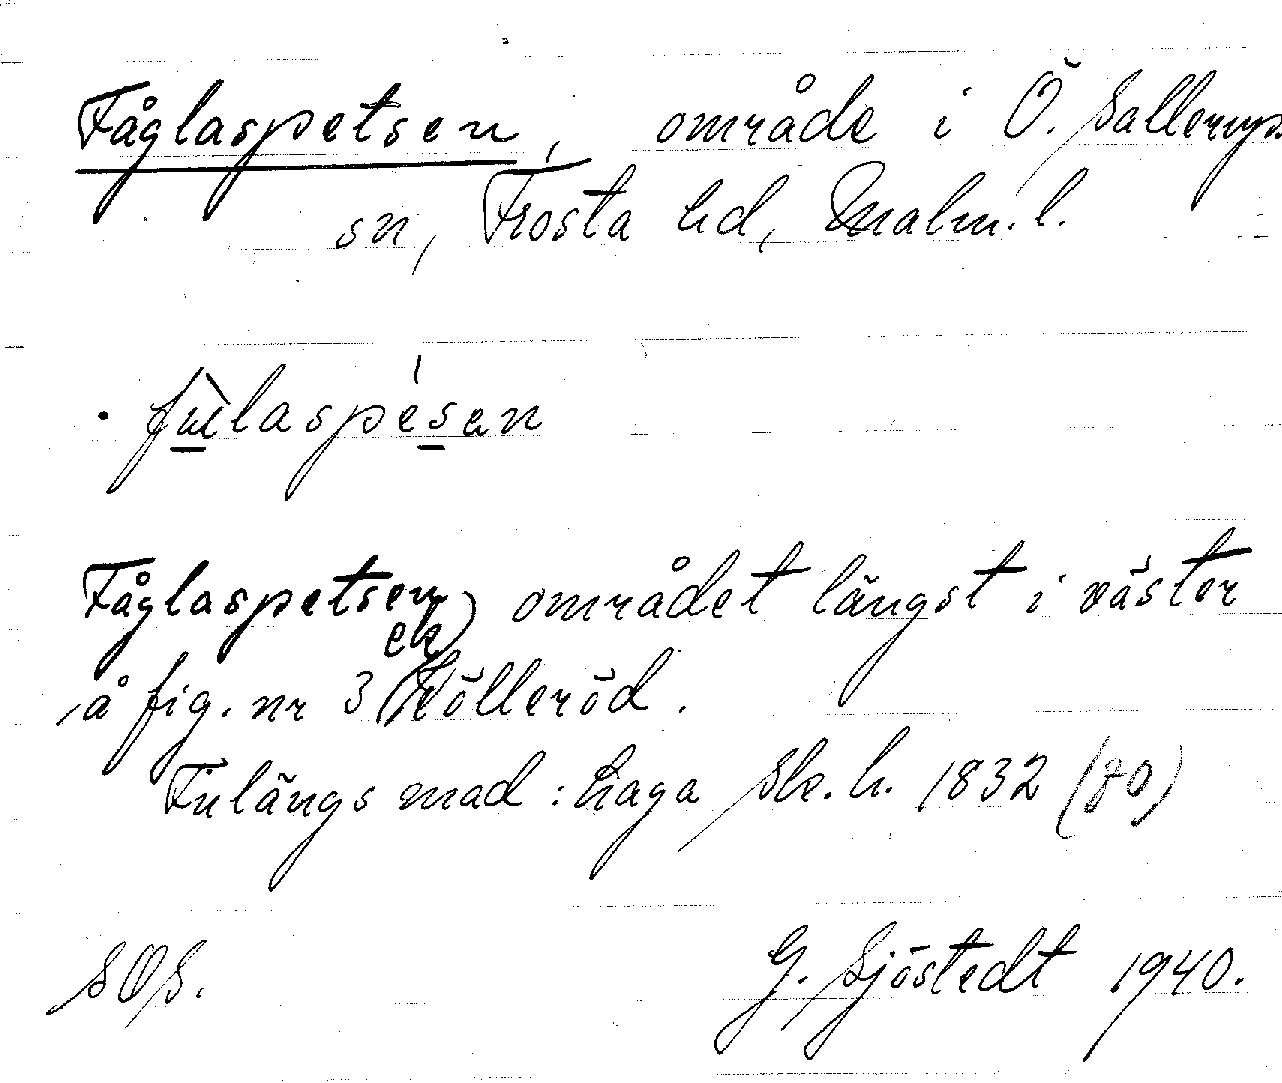 Fåglaspetsen, område i Ö. Sallerups
sn, Frosta hd, Malm. l.
· fùlaspésen
Fåglaspetsen) området längst i väster
ek
å fig. nr 3 Kölleröd.
Fulängs mad : Laga Sk. h. 1832 (80)
SOS. G. Sjöstedt 1940.